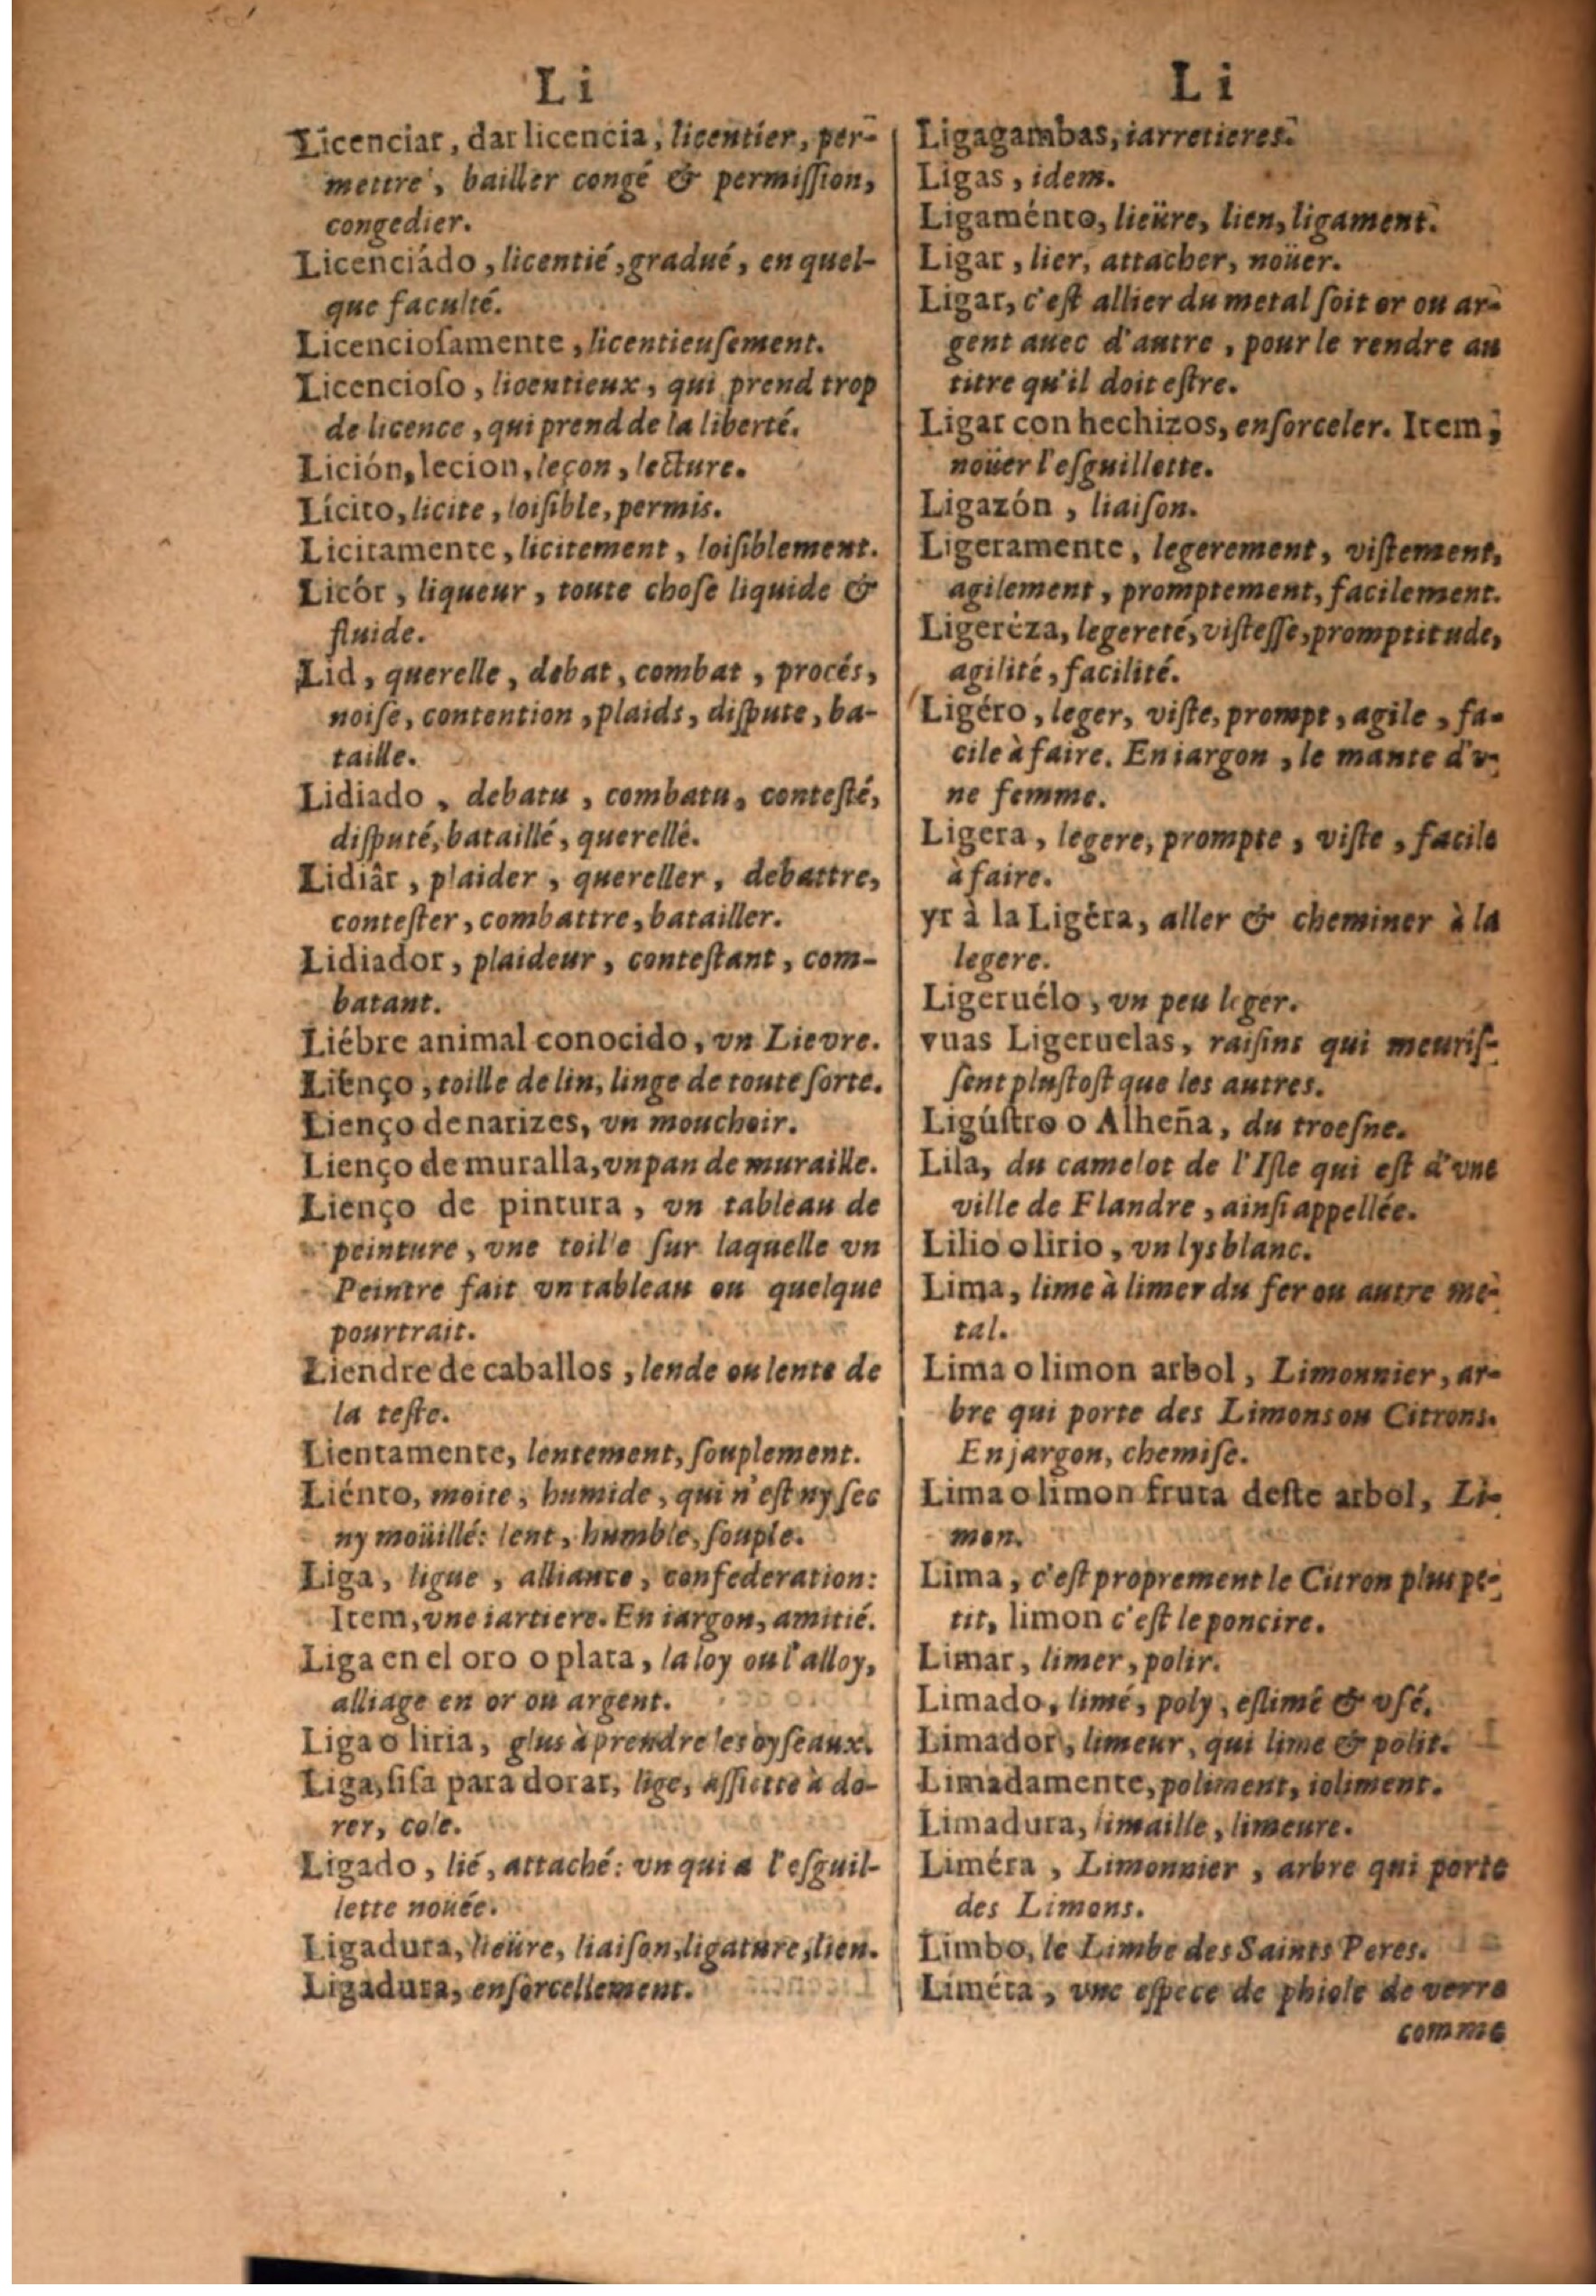 Li
Licenciar, dar licencia, licentier, per-
mettre, bailler congé & permiſſion,
congedier.
Licenciádo, licentié, gradué, en quel-
que faculté.
Licencioſamente, licentieuſement.
Licencioſo, licentieux, qui prend trop
de licence, qui prend de la liberté.
Lición, lecion, leçon, lecture.
Lícito, licite, loiſible, permis.
Licitamente, licitement, loiſiblement.
Licór, liqueur, toute choſe liquide &
fluide.
Lid, querelle, debat, combat, procés,
noiſe, contention, plaids, diſpute, ba-
taille.
Lidiado, debatu, combatu, conteſté,
diſputé, bataillé, querellé.
Lidiâr, plaider, quereller, debattre,
conteſter, combattre, batailler.
Lidiador, plaideur, conteſtant, com-
batant.
Liébre animal conocido, vn Lievre.
Liénço, toille de lin, linge de toute ſorte.
Lienço de narizes, vn mouchoir.
Lienço de muralla, vn pan de muraille.
Lienço de pintura, vn tableau de
peinture, vne toille ſur laquelle vn
Peintre fait vn tableau ou quelque
pourtrait.
Liendre de caballos, lende ou lente de
la teſte.
Lientamente, lentement, ſouplement.
Liénto, moite, humide, qui n'eſt ny ſec
ny moüillé: lent, humble, ſouple.
Liga, ligue, alliance, confederation:
Item, vne iartiere. En iargon, amitié.
Liga en el oro o plata, la loy ou l'alloy,
alliage en or ou argent.
Liga o liria, glus à prendre les oyſeaux.
Liga, ſiſa para dorar, lige, aſſiette à do-
rer, cole.
Ligado, lié, attaché: vn qui a l'eſguil-
lette nouée.
Ligadura, lieüre, liaiſon, ligature, lien.
Ligadura, enſorcellement.
Li
Ligagambas, iarretieres.
Ligas, idem.
Ligaménto, lieüre, lien, ligament.
Ligar, lier, attacher, noüer.
Ligar, c'eſt allier du metal ſoit or ou ar-
gent auec d'autre, pour le rendre au
titre qu'il doit eſtre.
Ligar con hechizos, enſorceler. Item,
noüer l'eſguillette.
Ligazón, liaiſon.
Ligeramente, legerement, viſtement,
agilement, promptement, facilement.
Ligeréza, legereté, viſteſſe, promptitude,
agilité, facilité.
Ligéro, leger, viſte, prompt, agile, fa-
cile à faire. En iargon, le mante d'v-
ne femme.
Ligera, legere, prompte, viſte, facile
à faire.
yr à la Ligéra, aller & cheminer à la
legere.
Ligeruélo, vn peu leger.
vuas Ligeruelas, raiſins qui meuriſ-
ſent pluſtoſt que les autres.
Ligúſtro o Alheña, du troeſne.
Lila, du camelot de l'Iſle qui eſt d'vne
ville de Flandre, ainſi appellée.
Lilio o lirio, vn lys blanc.
Lima, lime à limer du fer ou autre me-
tal.
Lima o limon arbol, Limonnier, ar-
bre qui porte des Limons ou Citrons.
En jargon, chemiſe.
Lima o limon fruta deſte arbol, Li-
mon.
Lima, c'eſt proprement le Citron plus pe-
tit, limon c'eſt le poncire.
Limar, limer, polir.
Limado, limé, poly, eſlimé & vſé.
Limador, limeur, qui lime & polit.
Limadamente, poliment, ioliment.
Limadura, limaille, limeure.
Liméra, Limonnier, arbre qui porte
des Limons.
Limbo, le Limbe des Saints Peres.
Liméta, vne eſpece de phiole de verre
comme